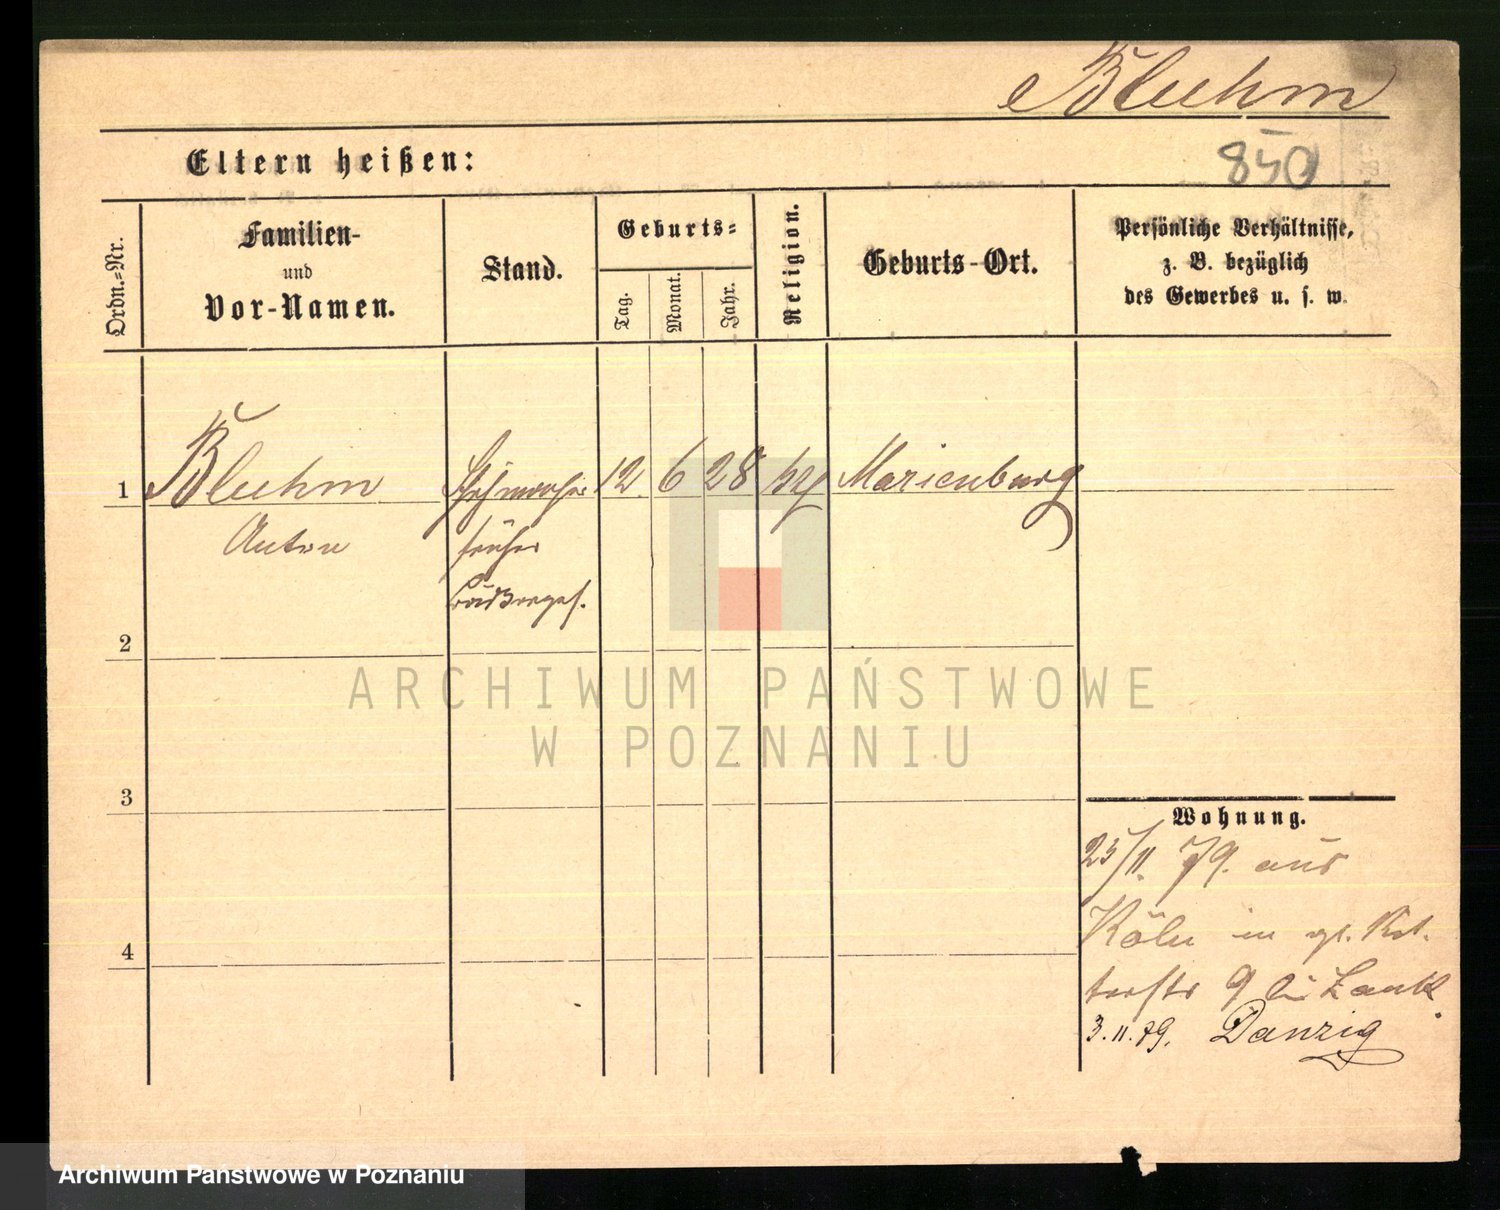 Bluhm
850
Eltern heißen:
Ordn.-Nr.
Familien-
und
Vor-Namen.
Stand.
Geburts-
Tag.
Monat.
Jahr.
Religion.
Geburts-Ort.
Persönliche Verhältnisse,
z. B. bezüglich
des Gewerbes u. s. w.
1 Bluhm 12 6 28 Marienburg
Anton früher
2
3
4
Wohnung.
25/11. 79. aus
Köln in
9 bei
3.11.79. Danzig
ARCHIWUM PAŃSTWOWE
W POZNANIU
Archiwum Państwowe w Poznaniu